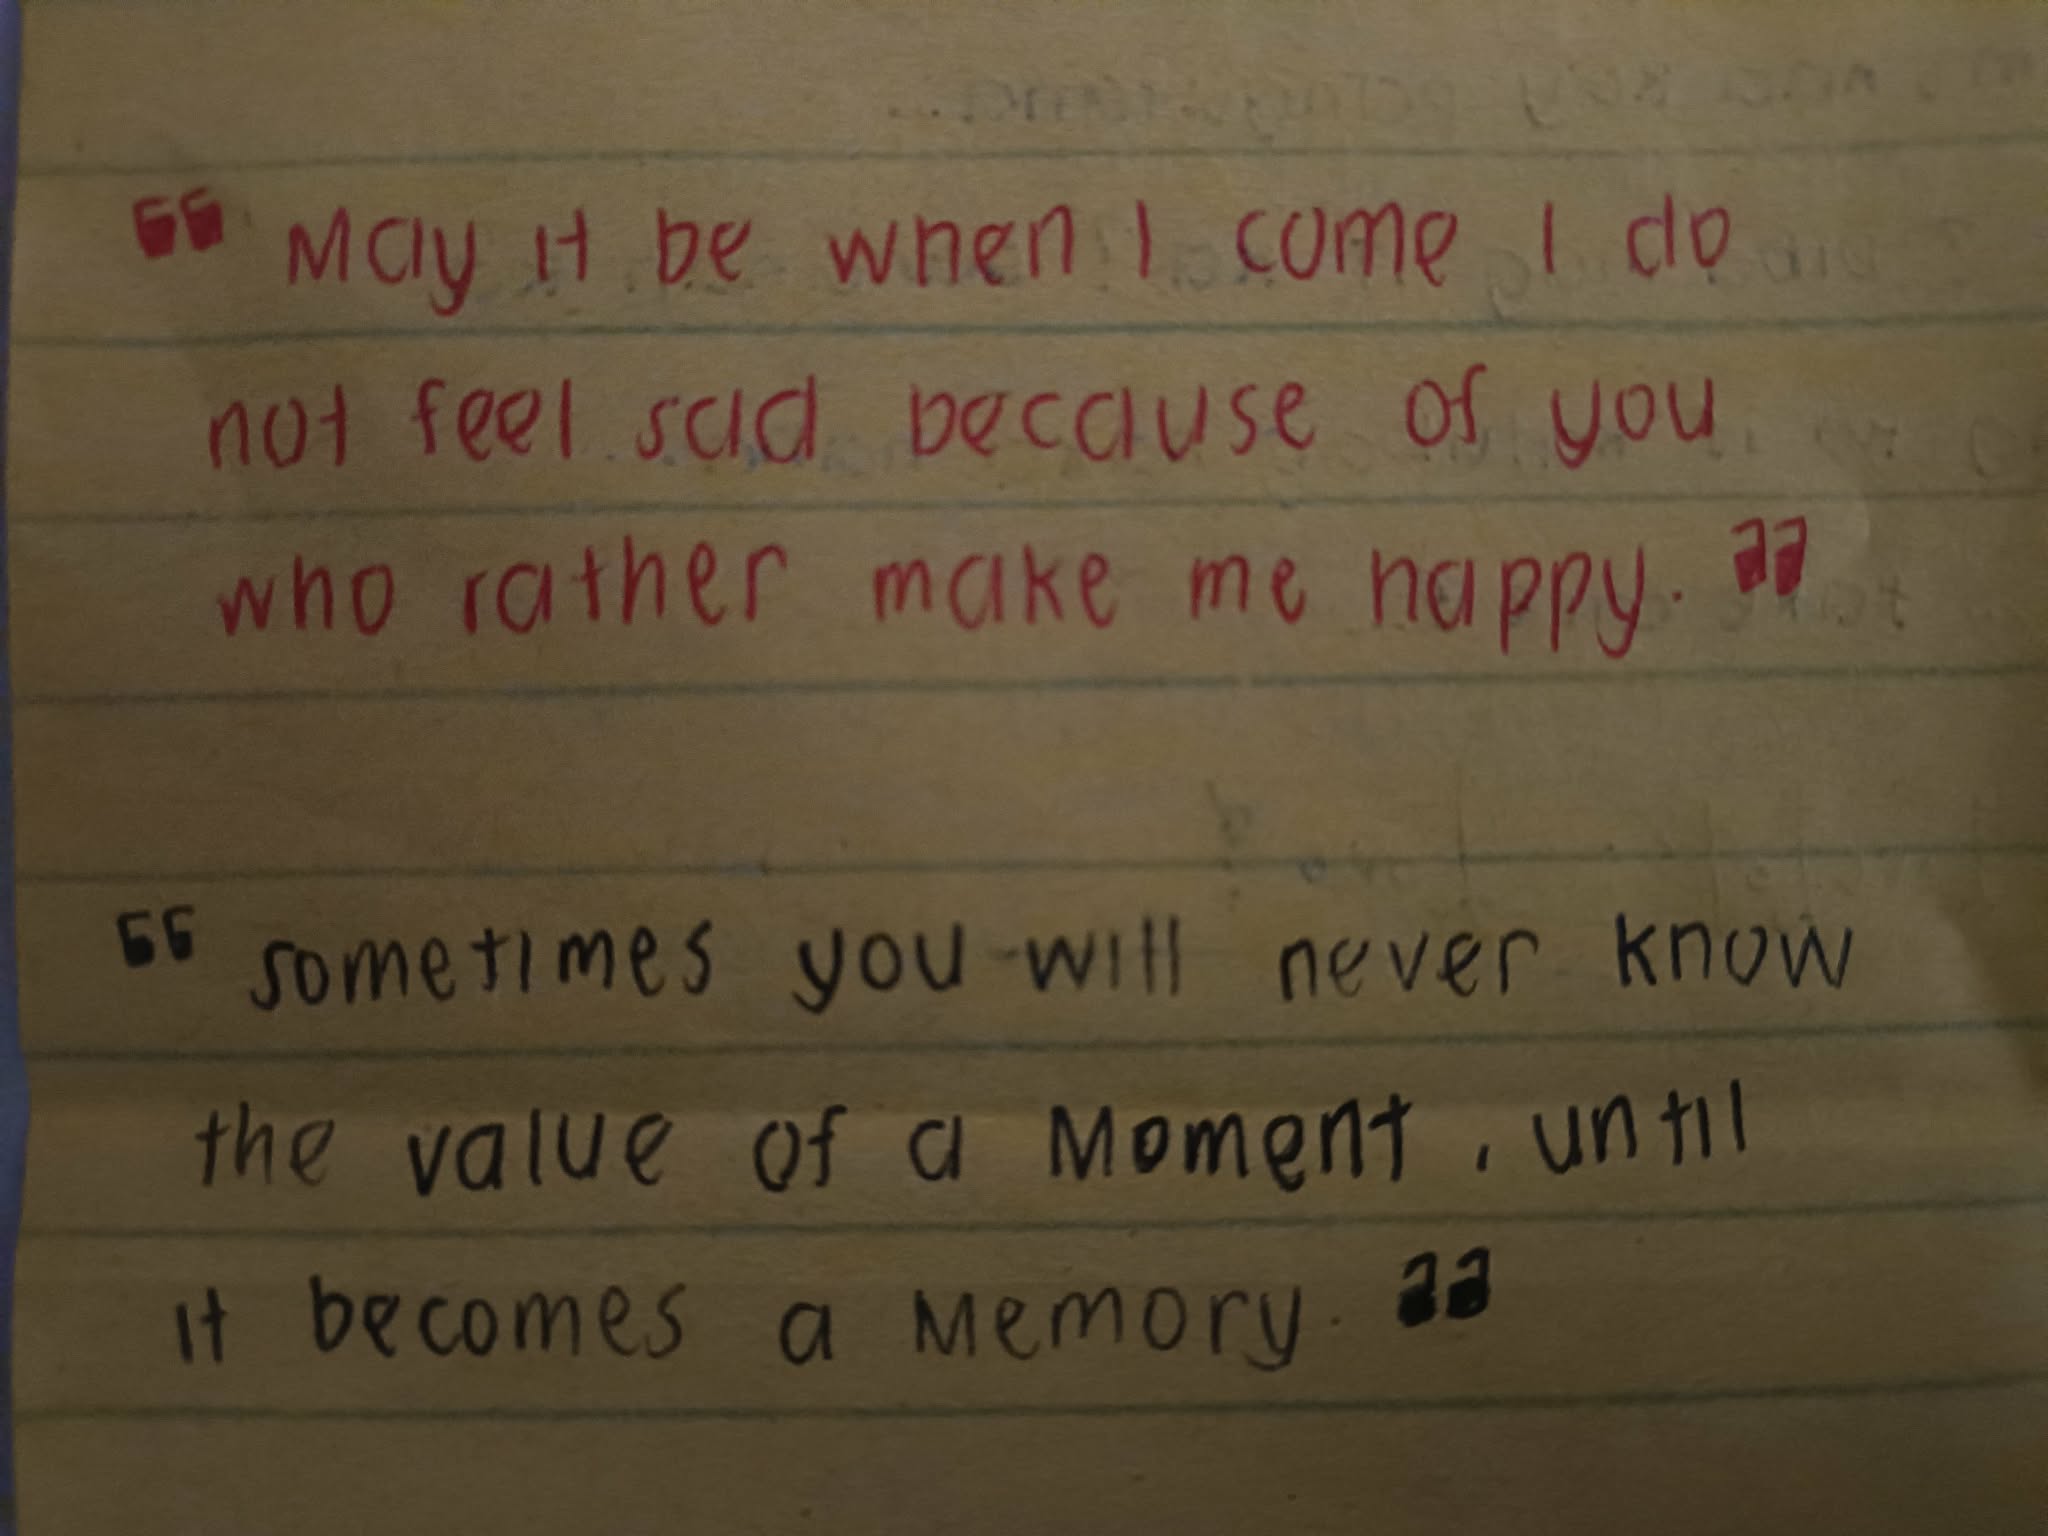 “ May it be when I come I do
not feel sad because of you
who rather make me happy. ”
“ sometimes you will never know
the value of a Moment, until
it becomes a Memory. ”